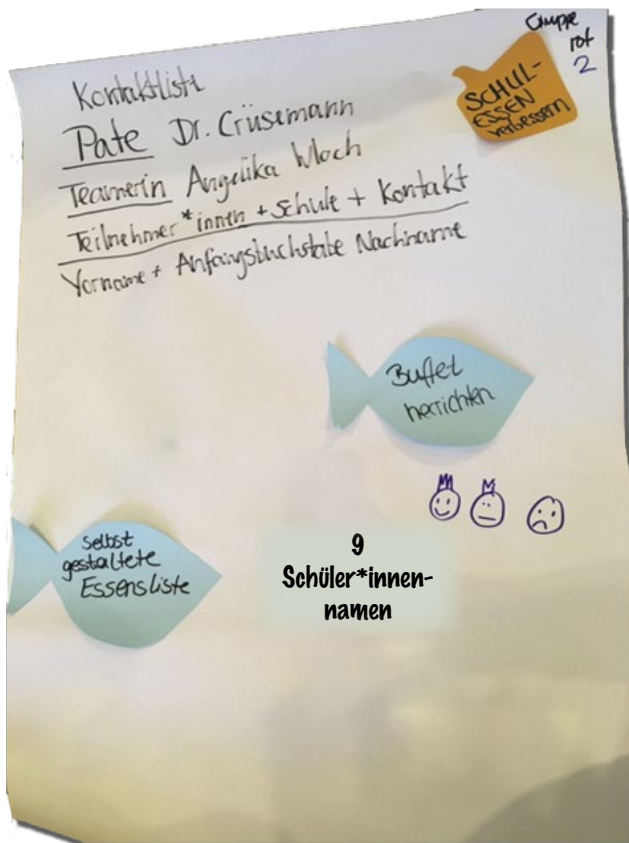 Gruppe
rot
2
SCHUL-
ESSEN
verbessern
Kontaktliste
Pate Dr. Crüsemann
Teamerin Angelika Wloch
Teilnehmer*innen + Schule + Kontakt
Vorname + Anfangsbuchstabe Nachname
Buffet
herrichten
selbst
gestaltete
Essensliste
9
Schüler*innen-
namen